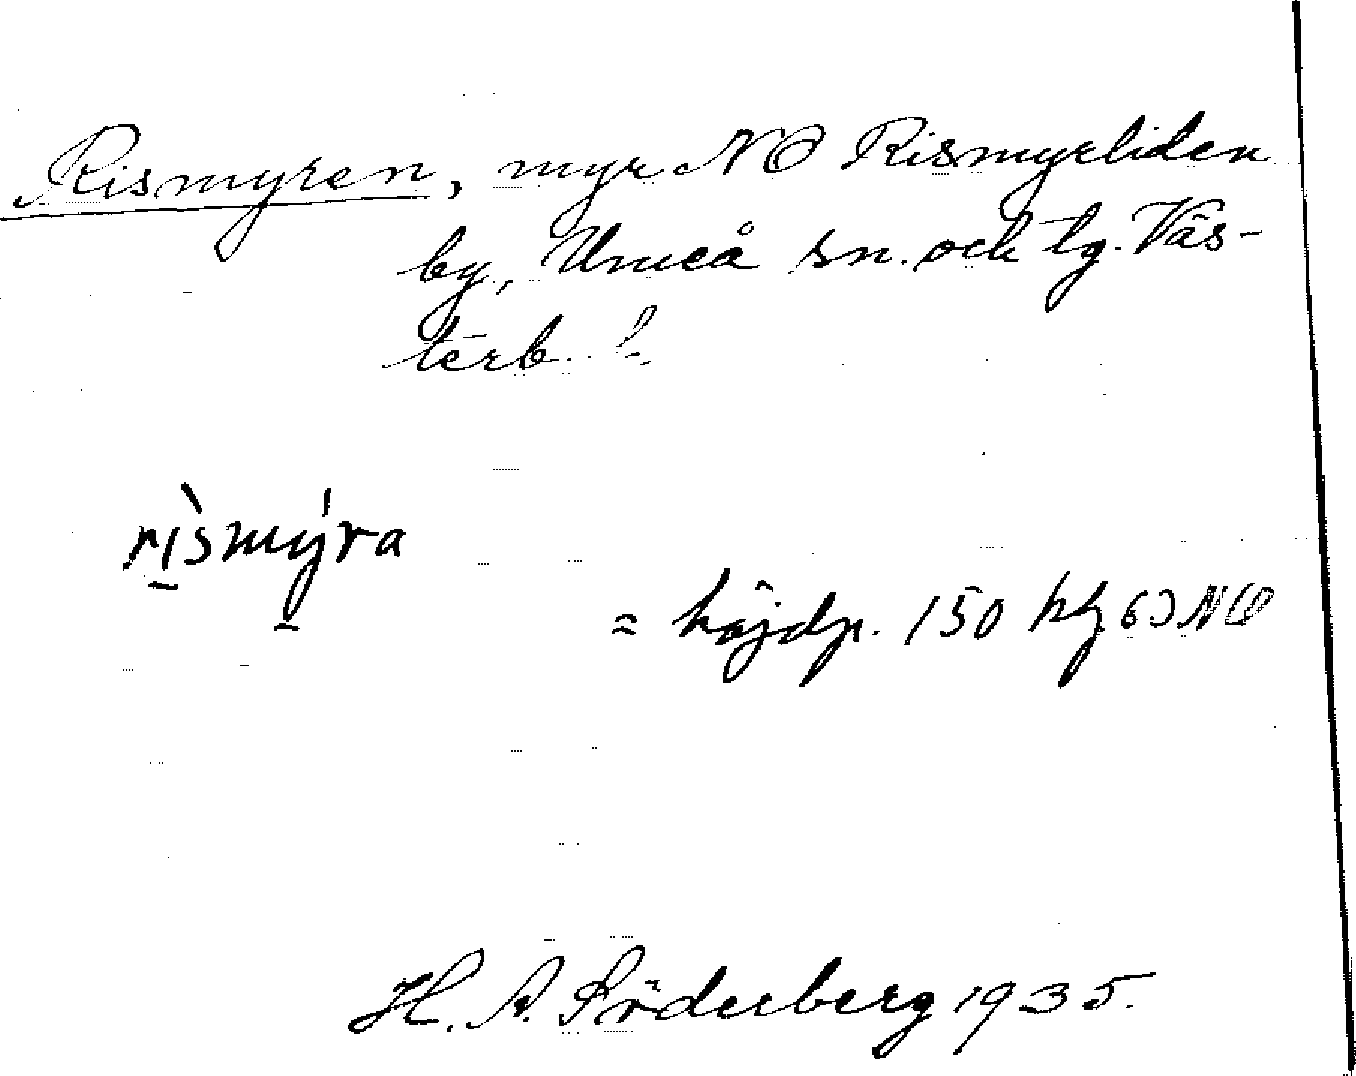 Rismyren, myr NO Rismyrliden
by, Umeå sn. och tg. Väs-
terb. !
rìsmýra
= höjdp. 150 hf 63 NO
H. A. Söderberg 1935.